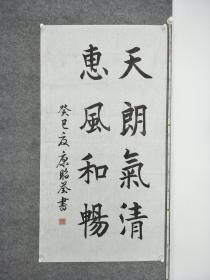 天朗氣清
惠風和暢
癸巳夏康昭荃書